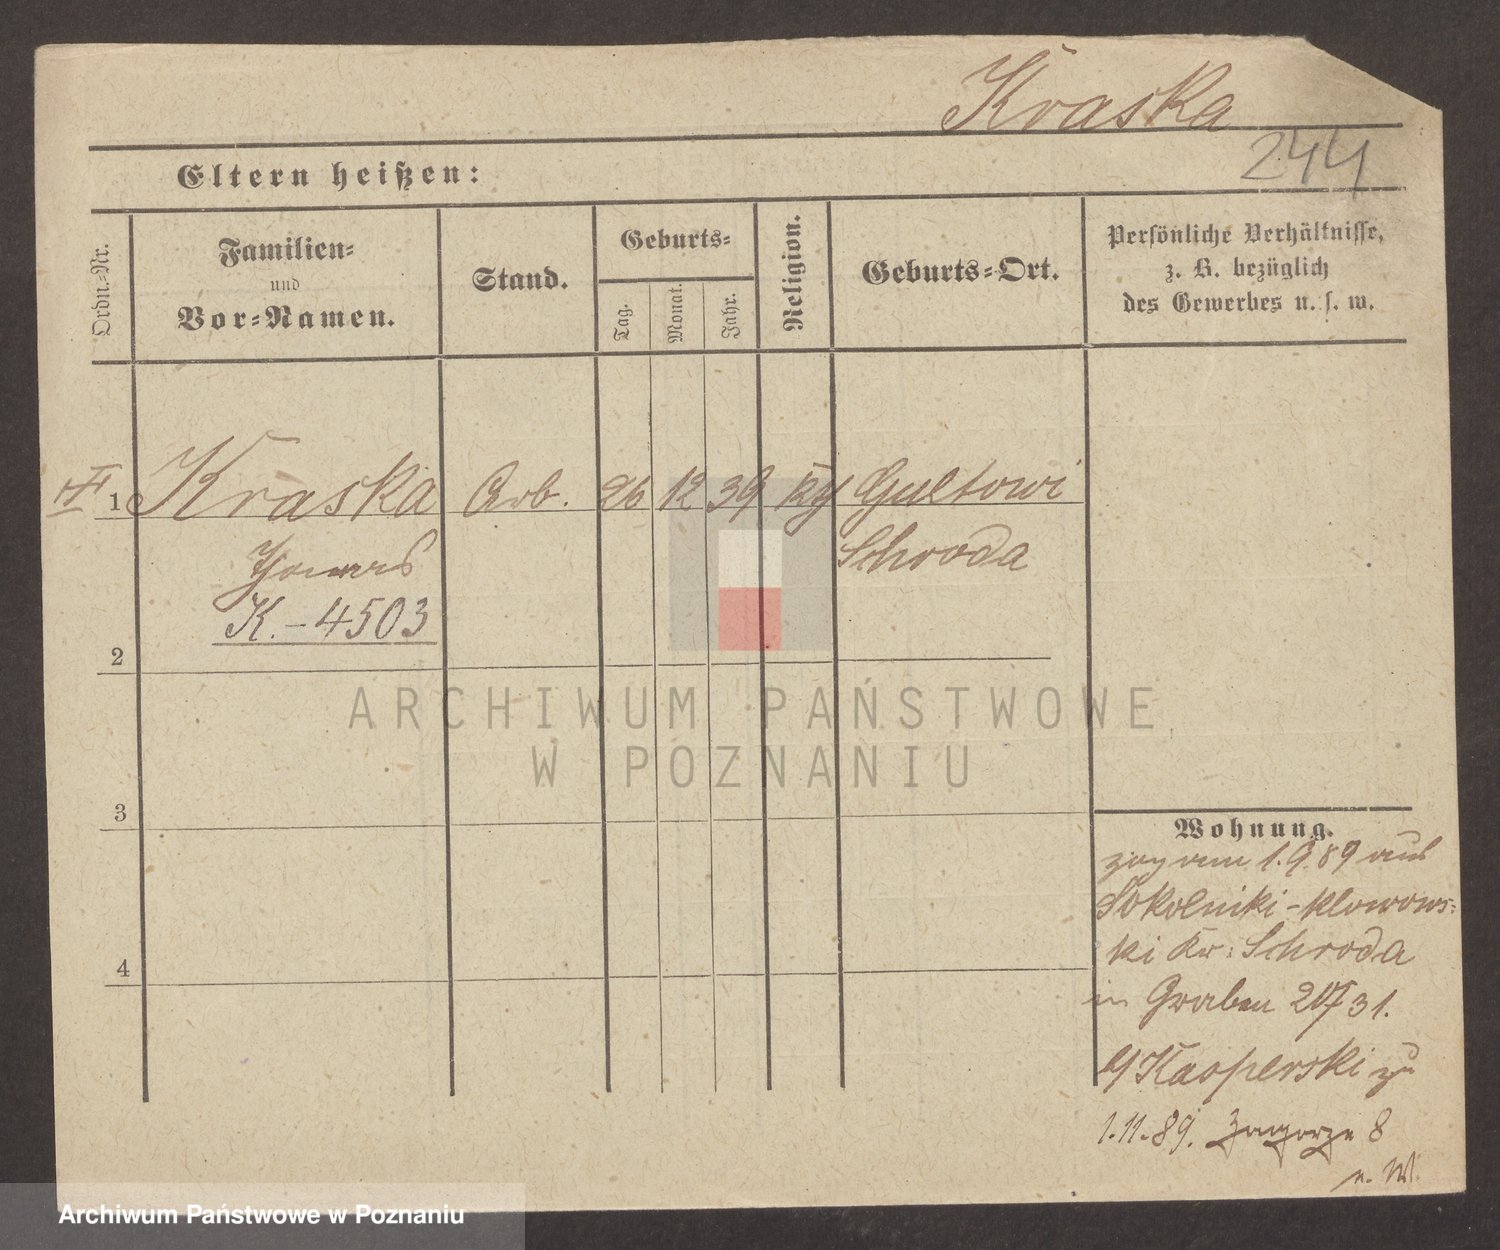 Kraska
244
Eltern heißen:
Ordn.-Nr.
Familien-
und
Vor-Namen.
Stand.
Geburts-
Tag.
Monat.
Jahr.
Religion.
Geburts-Ort.
Persönliche Verhältnisse,
z. B. bezüglich
des Gewerbes u. s. w.
1 Kraska Arb. 26 12 39 Gultowi
Schroda
K.-4503
2
3
4
Wohnung.
zog am 1.9.89 aus
Sokolniki-Klonows-
ki Kr: Schroda
in Graben 31.
Kasperski zu
1.11.89. Zagorze 8
ARCHIWUM PAŃSTWOWE
W POZNANIU
Archiwum Państwowe w Poznaniu